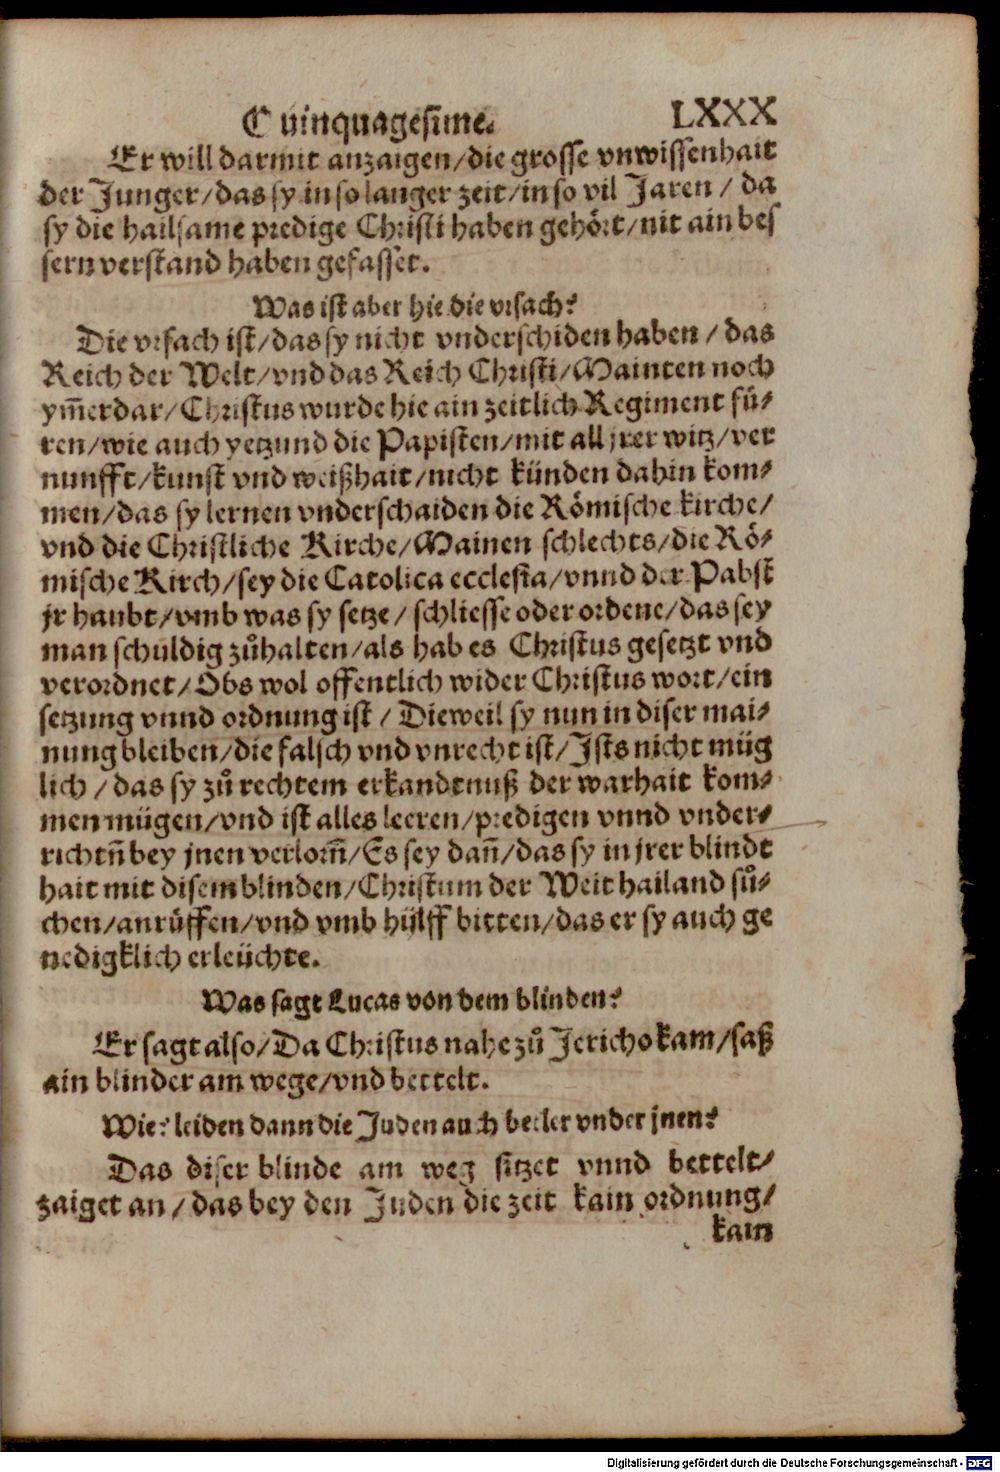 Quinquagesime. LXXX
Er will darmit anzaigen/die grosse vnwissenhait
der Junger/das sy in so langer zeit/in so vil Jaren / da
sy die hailsame predige Christi haben gehört/nit ain bes
sern verstand haben gefasset.
Was ist aber hie die vrsach?
Die vrsach ist/das sy nicht vnderschiden haben / das
Reich der Welt/vnd das Reich Christi/Mainten noch
ym̃erdar/Christus wurde hie ain zeitlich Regiment fü⸗
ren/wie auch yetzund die Papisten/mit all jrer witz/ver
nunfft/kunst vnd weißhait/nicht künden dahin kom⸗
men/das sy lernen vnderschaiden die Römische kirche/
vnd die Christliche Kirche/Mainen schlechts/die Rö⸗
mische Kirch/sey die Catolica ecclesia/vnnd der Pabst
jr haubt/vmb was sy setze/ schliesse oder ordene/das sey
man schuldig zůhalten/als hab es Christus gesetzt vnd
verordnet/Obs wol offentlich wider Christus wort/ein
setzung vnnd ordnung ist / Dieweil sy nun in diser mai⸗
nung bleiben/die falsch vnd vnrecht ist/Ists nicht müg
lich / das sy zů rechtem erkandtnuß der warhait kom⸗
men mügen/vnd ist alles leeren/predigen vnnd vnder⸗
richtñ bey jnen verlorñ/Es sey dañ/das sy in jrer blindt
hait mit disem blinden/Christum der Welt hailand sů⸗
chen/anrůffen/vnd vmb hülff bitten/das er sy auch ge
nedigklich erleüchte.
Was sagt Lucas von dem blinden?
Er sagt also/Da Christus nahe zů Jericho kam/saß
ain blinder am wege/vnd bettelt.
Wie? leiden dann die Juden auch betler vnder jnen?
Das diser blinde am weg sitzet vnnd bettelt/
zaiget an / das bey den Juden die zeit kain ordnung/
kain
Digitalisierung gefördert durch die Deutsche Forschungsgemeinschaft - DFG